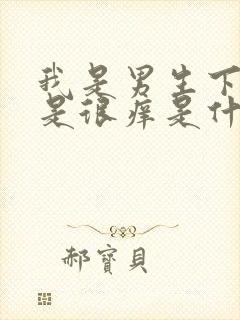 我是男生下
是很痒是什
郝寶貝